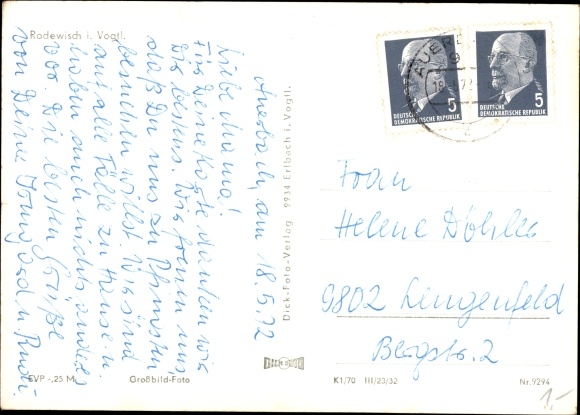 Rodewisch i. Vogtl.
Auerbach, am 18.5.72
Liebe Mama!
Für Deine Karte danken wir
Dir bestens. Wir freuen uns,
daß Du uns zu Pfingsten
besuchen willst. Wir sind
auf alle Fälle zu Hause u.
haben auch nichts anderes
vor. Die besten Grüße
von Deine Irmgard u. Rudi.
EVP -,25 M
Großbild-Foto
Dick-Foto-Verlag 9934 Erlbach i. Vogtl.
DICK FOTO
DEUTSCHE
DEMOKRATISCHE REPUBLIK
5
DEUTSCHE
DEMOKRATISCHE REPUBLIK
5
Frau
Helene Döhler
9802 Lengenfeld
Bergstr. 2
K1/70 III/23/32
Nr. 9294
1,-